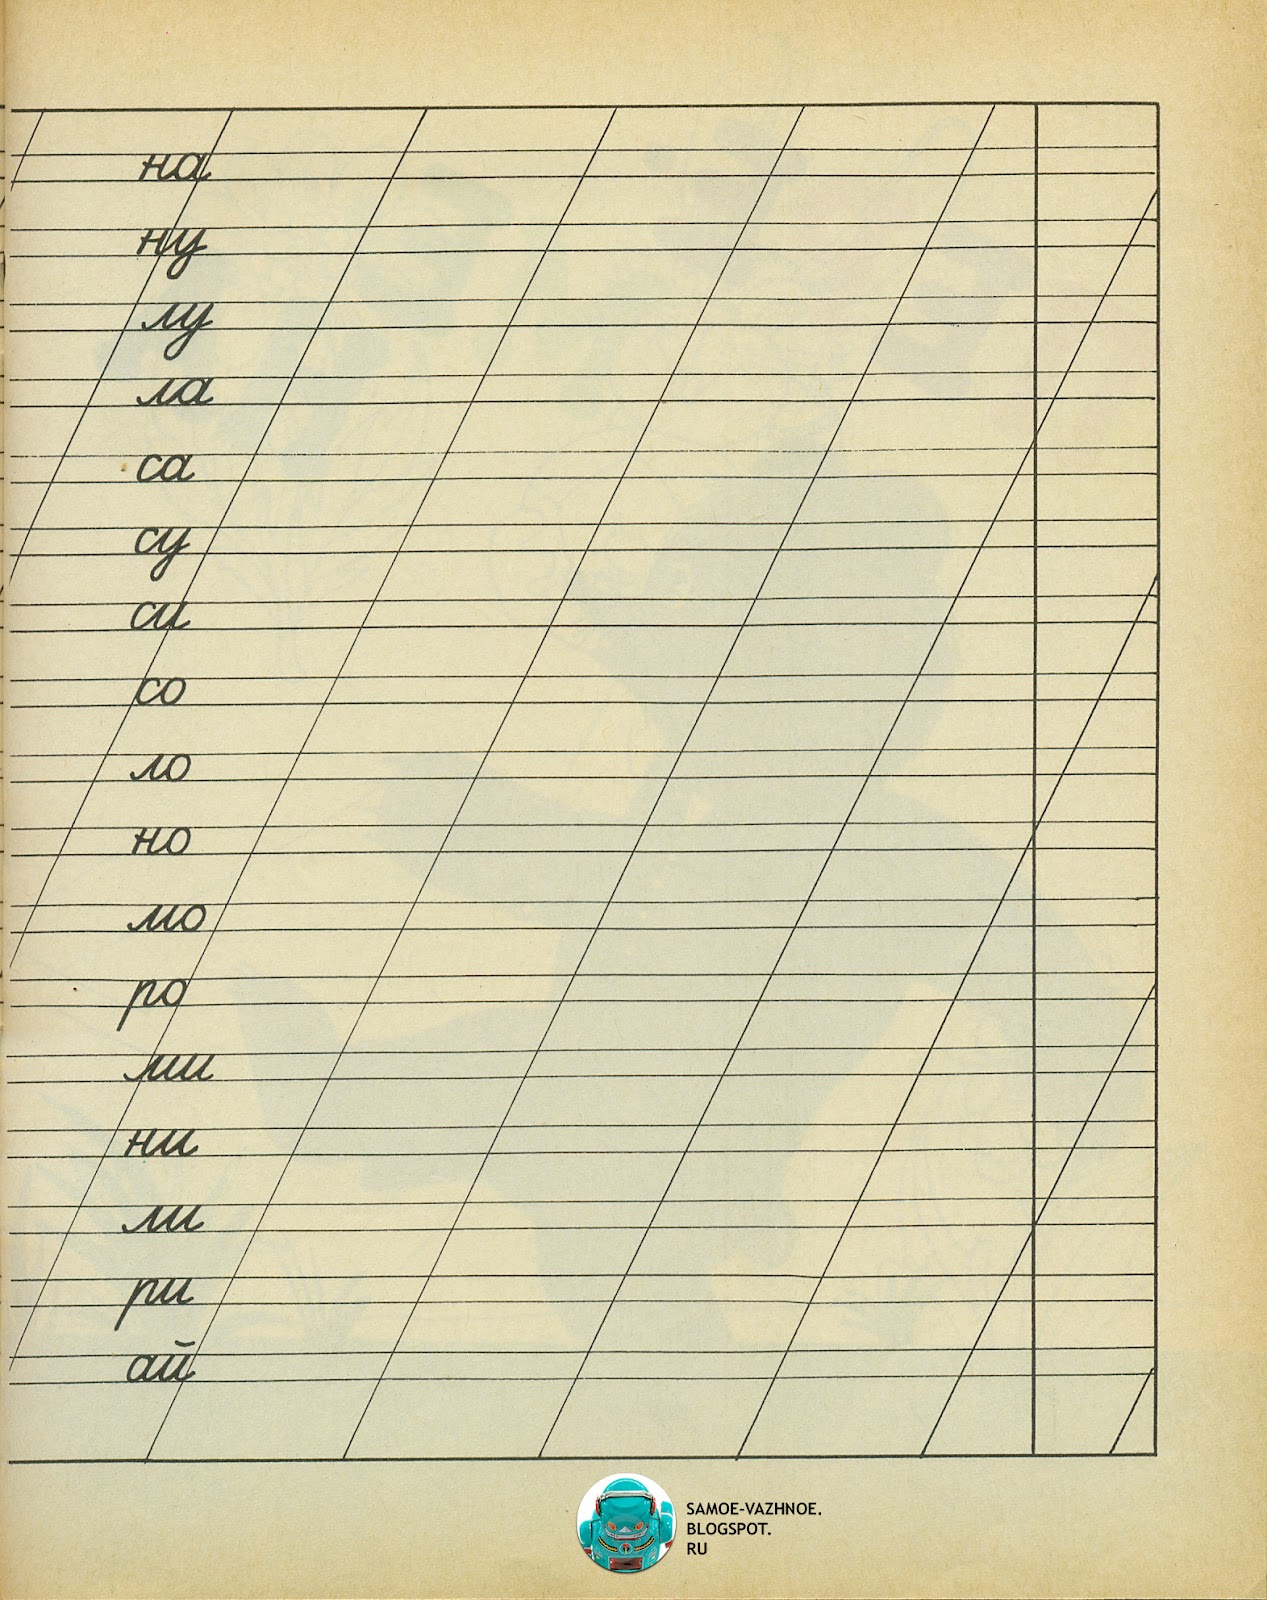 на
ну
лу
ла
са
су
си
со
ло
но
мо
ро
ми
ни
ли
ри
ай
SAMOE-VAZHNOE.
BLOGSPOT.
RU